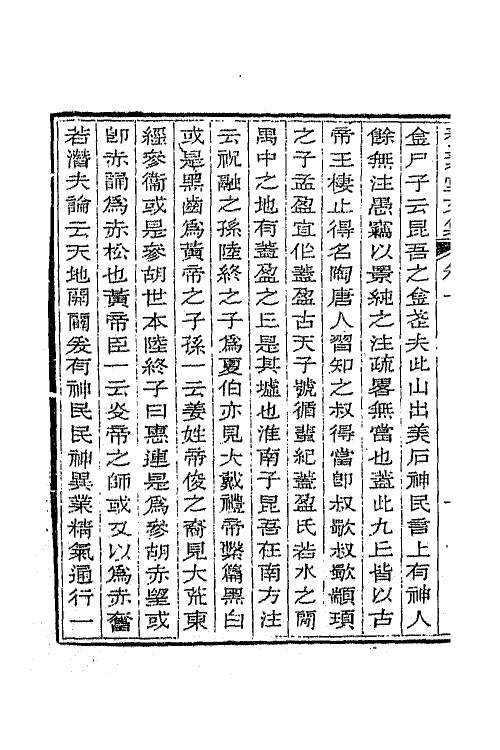 金尸子云昆吾之金葢夫此山出美石神民言上有神人
餘無注愚竊以景純之注疏畧無當也葢此九丘皆以古
帝王棲止得名陶唐人習知之叔得當卽叔歜叔歜顓頊
之子孟盈宜作葢盈古天子號循蜚紀葢盈氏若水之閒
禺中之地有葢盈之丘是其墟也淮南子昆吾在南方注
云祝融之孫陸終之子爲夏伯亦見大戴禮帝繫篇黑白
或是黑齒爲黃帝之子孫一云姜姓帝俊之裔見大荒東
經參衞或是參胡世本陸終子曰惠連是爲參胡赤望或
卽赤誦爲赤松也黃帝臣一云炎帝之師或又以爲赤奮
若潛夫論云天地開闢爰有神民民神異業精氣通行一